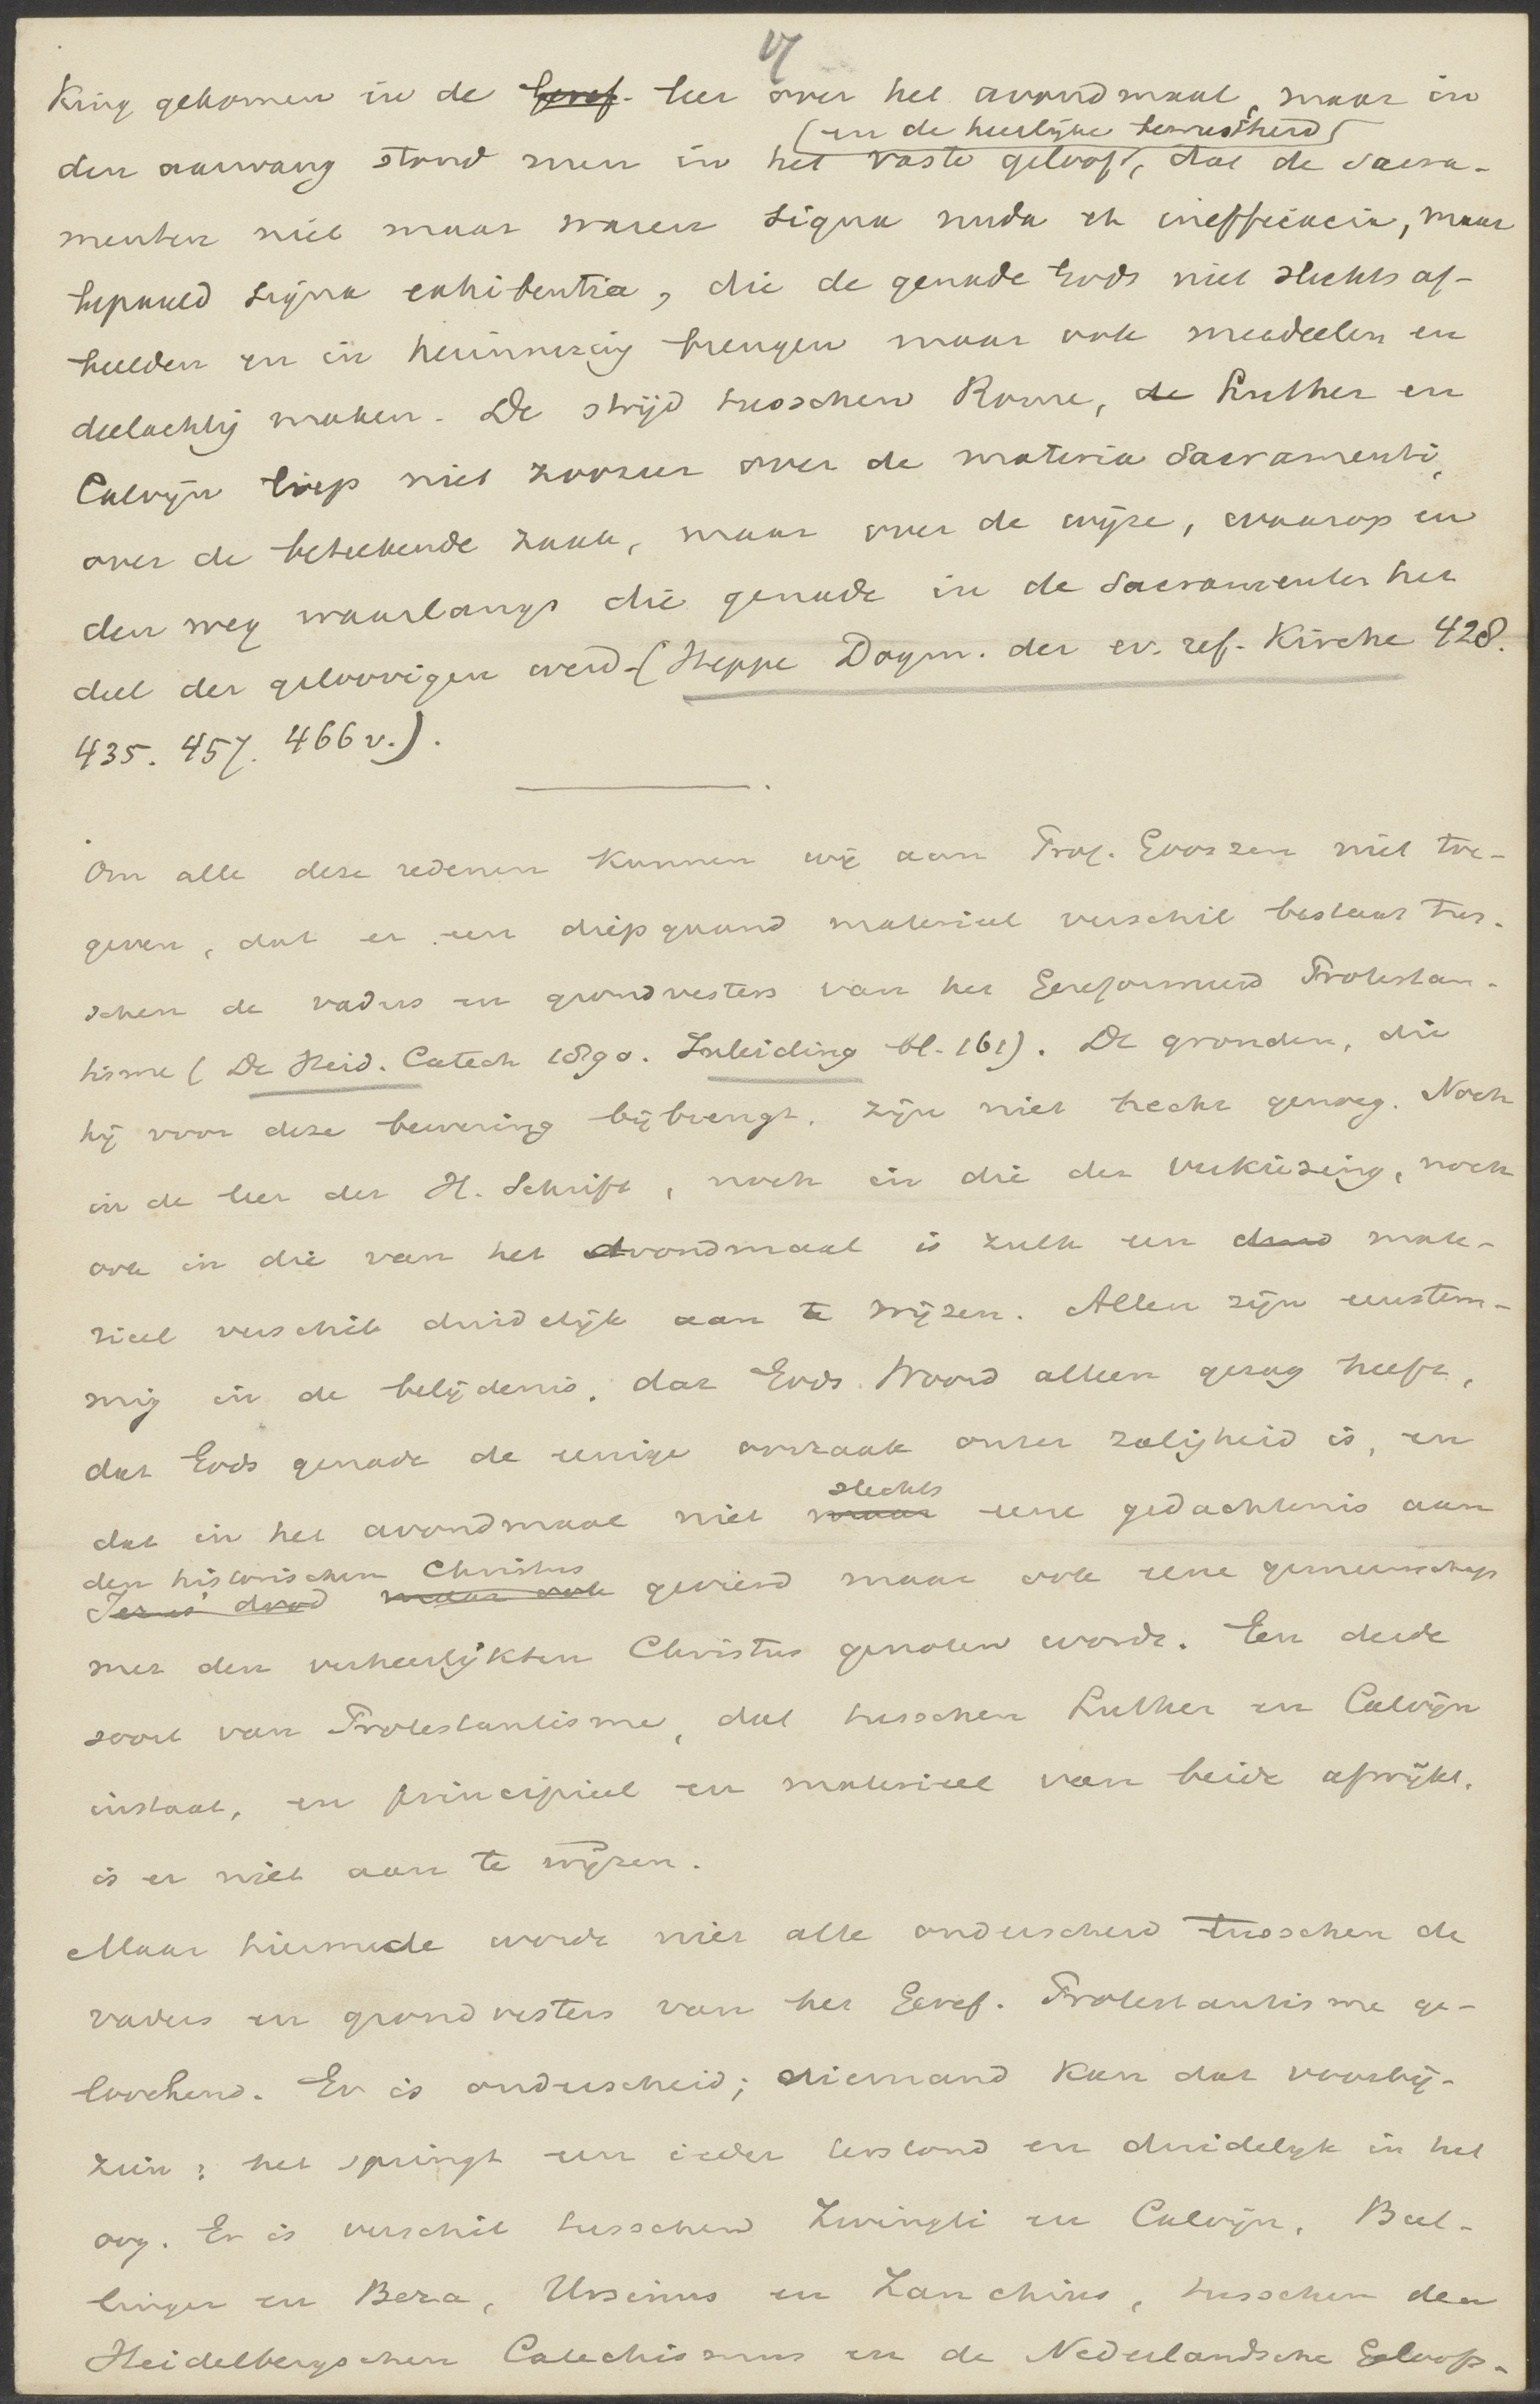 17
king gekomen in de Geref. leer over het avondmaal, maar in
(en de heerlijke bewustheid)
den aanvang stond men in het vaste geloof, dat de sacra-
menten niet maar waren signa nuda et inefficacia, maar
bepaald signa exhibentia, die de genade Gods niet slechts af-
beelden en in herinnering brengen maar ook meedeelen en
deelachtig maken. De strijd tusschen Rome, de Luther en
Calvijn liep niet zoozeer over de materia Sacramenti,
over de beteekende zaak, maar over de wijze, waarop en
den weg waarlangs die genade in de Sacramenten het
deel der geloovigen werd (Heppe Dogm. der ev. ref. Kirche 428.
435. 457. 466 v.).
Om alle deze redenen kunnen wij aan Prof. Gooszen niet toe-
geven, dat er een diepgaand materieel verschil bestaat tus-
schen de vaders en grondvesters van het Gereformeerd Protestan-
tisme (De Heid. Catech 1890. Inleiding bl. 161). De gronden, die
hij voor deze bewering bijbrengt, zijn niet hecht genoeg. Noch
in de leer der H. Schrift, noch in die der verkiezing, noch
ook in die van het avondmaal is zulk een mate-
rieel verschil duidelijk aan te wijzen. Allen zijn eenstem-
mig in de belijdenis, dat Gods Woord alleen gezag heeft,
dat Gods genade de eenige oorzaak onzer zaligheid is, en
slechts
dat in het avondmaal niet maar eene gedachtenis aan
den historischen Christus
Jezus' dood maar ook gevierd maar ook eene gemeenschap
met den verheerlijkten Christus genoten wordt. Een derde
soort van Protestantisme, dat tusschen Luther en Calvijn
instaat, en principieel en materieel van beide afwijkt,
is er niet aan te wijzen.
Maar hiermede wordt niet alle onderscheid tusschen de
vaders en grondvesters van het Geref. Protestantisme ge-
loochend. Er is onderscheid; niemand kan dat voorbij-
zien; het springt een ieder terstond en duidelijk in het
oog. Er is verschil tusschen Zwingli en Calvijn, Bul-
linger en Beza, Ursinus en Zanchius, tusschen den
Heidelbergschen Catechismus en de Nederlandsche Geloofs-